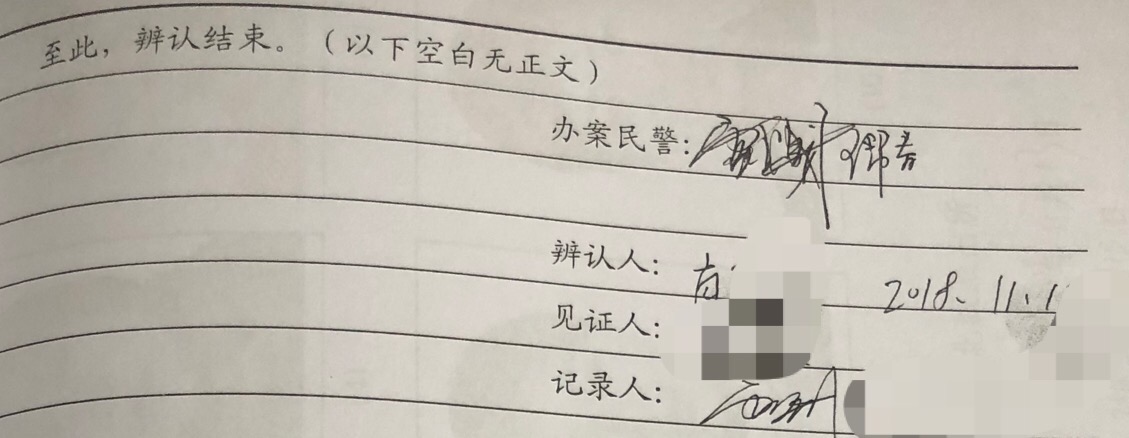 至此，辨认结束。（以下空白无正文）
办案民警：
辨认人： 2018.11.1
见证人：
记录人：